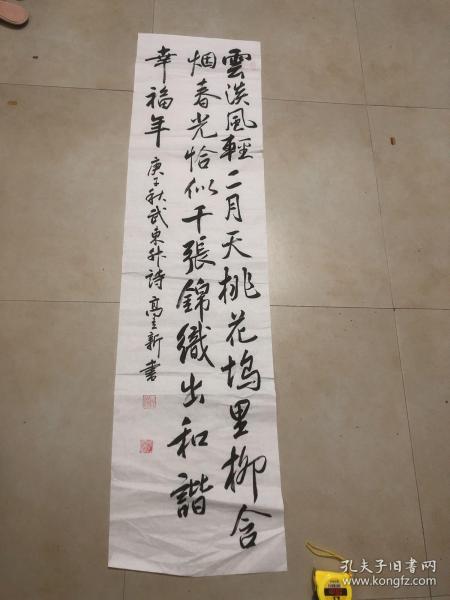 雲淡風輕二月天桃花塢里柳含
烟春光恰似千張錦織出和諧
幸福年 庚子秋武東升詩 高立新書
孔夫子旧书网
www.kongfz.com